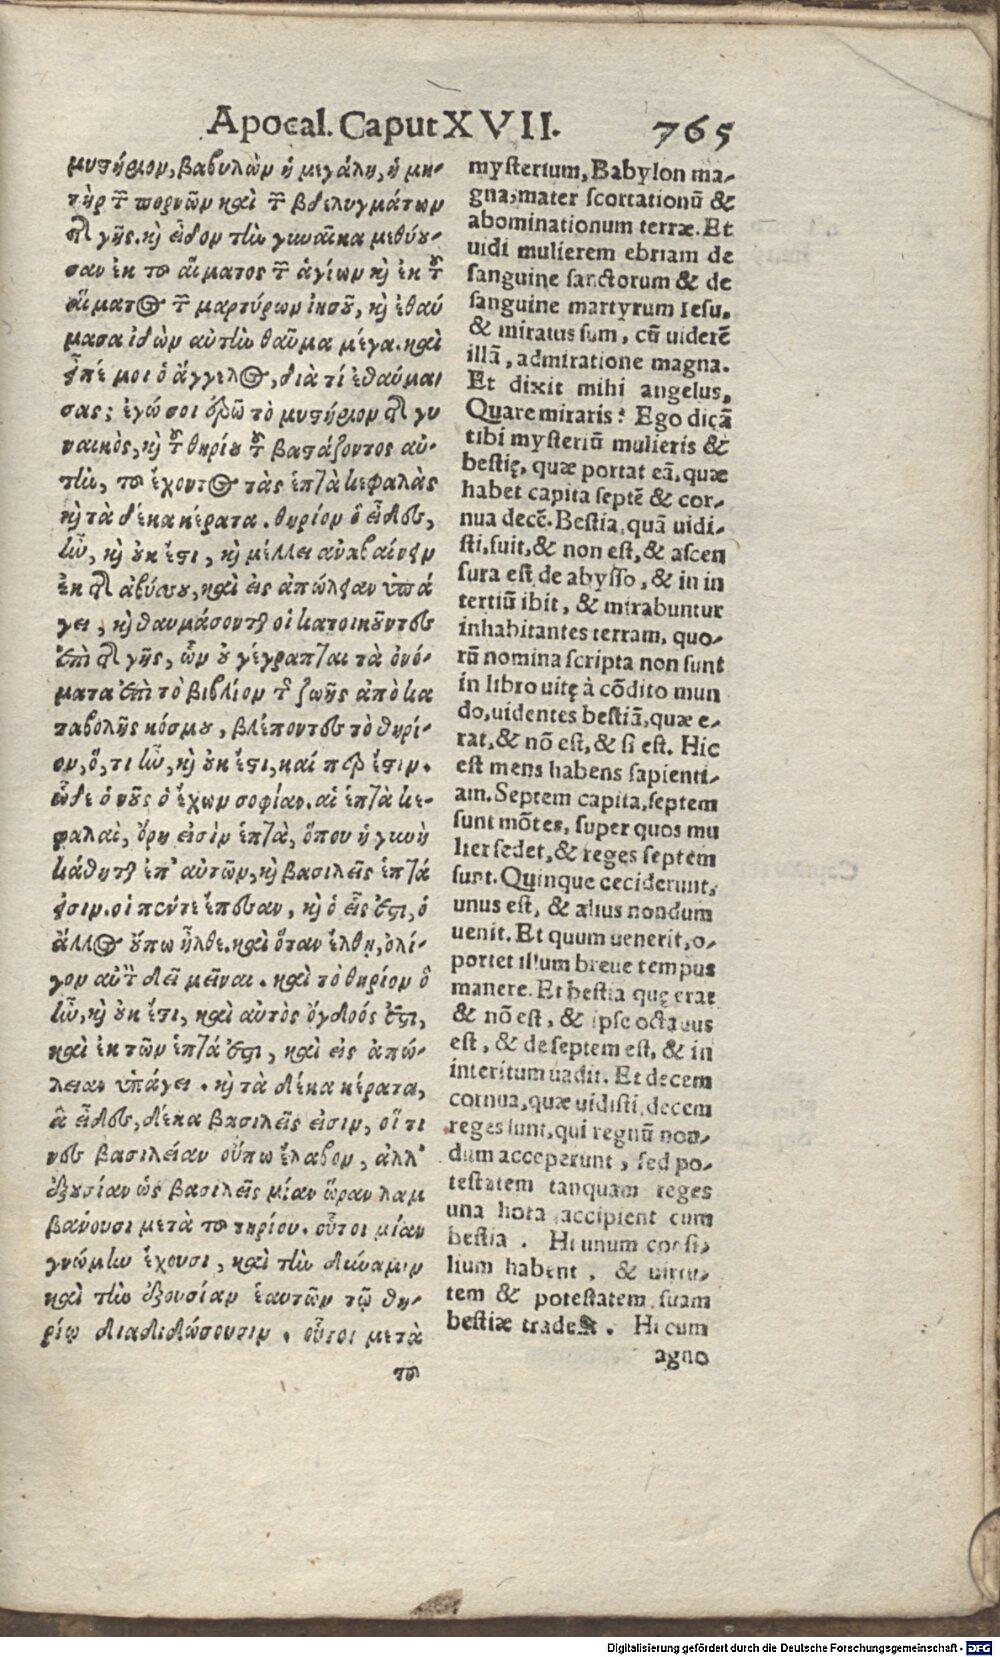 Apocal. Caput XVII. 765
μυστήριον, βαβυλὼν ἡ μεγάλη, ἡ μη-
τὴρ τῶν πορνῶν καὶ τῶν βδελυγμάτων
τῆς γῆς. καὶ εἶδον τὴν γυναῖκα μεθύου-
σαν ἐκ τοῦ αἵματος τῶν ἁγίων καὶ ἐκ τοῦ
αἵματος τῶν μαρτύρων ἰησοῦ, καὶ ἐθαύ
μασα ἰδὼν αὐτὴν θαῦμα μέγα. καὶ
εἶπέ μοι ὁ ἄγγελος, διὰ τί ἐθαύμα
σας; ἐγώ σοι ἐρῶ τὸ μυστήριον τῆς γυ
ναικὸς, καὶ τοῦ θηρίου τοῦ βαστάζοντος αὐ-
τὴν, τοῦ ἔχοντος τὰς ἑπτὰ κεφαλὰς
καὶ τὰ δέκα κέρατα. θηρίον ὃ εἶδες,
ἦν, καὶ οὐκ ἔστι, καὶ μέλλει ἀναβαίνειν
ἐκ τῆς ἀβύσσου, καὶ εἰς ἀπώλειαν ὑπά
γει, καὶ θαυμάσονται οἱ κατοικοῦντες
ἐπὶ τῆς γῆς, ὧν οὐ γέγραπται τὰ ὀνό-
ματα ἐπὶ τὸ βιβλίον τῆς ζωῆς ἀπὸ κα
ταβολῆς κόσμου, βλέποντες τὸ θηρί-
ον, ὅ, τι ἦν, καὶ οὐκ ἔστι, καί περ ἔστιν.
ὧδε ὁ νοῦς ὁ ἔχων σοφίαν. αἱ ἑπτὰ κε-
φαλαὶ, ὄρη εἰσὶν ἑπτὰ, ὅπου ἡ γυνὴ
κάθηται ἐπ' αὐτῶν, καὶ βασιλεῖς ἑπτά
εἰσιν. οἱ πέντε ἔπεσαν, καὶ ὁ εἷς ἐστι, ὁ
ἄλλος οὔπω ἦλθε. καὶ ὅταν ἔλθῃ, ὀλί-
γον αὐτὸν δεῖ μεῖναι. καὶ τὸ θηρίον ὃ
ἦν, καὶ οὐκ ἔστι, καὶ αὐτὸς ὄγδοός ἐστι,
καὶ ἐκ τῶν ἑπτά ἐστι, καὶ εἰς ἀπώ-
λειαν ὑπάγει. καὶ τὰ δέκα κέρατα,
ἃ εἶδες, δέκα βασιλεῖς εἰσιν, οἵ τι
νες βασιλείαν οὔπω ἔλαβον, ἀλλ'
ἐξουσίαν ὡς βασιλεῖς μίαν ὥραν λαμ
βάνουσι μετὰ τοῦ τηρίου. οὗτοι μίαν
γνώμην ἔχουσι, καὶ τὴν δύναμιν
καὶ τὴν ἐξουσίαν ἑαυτῶν τῷ θη-
ρίῳ διαδιδώσουσιν. οὗτοι μετὰ
τοῦ
mysterium, Babylon ma-
gna, mater scortationū &
abominationum terræ. Et
uidi mulierem ebriam de
sanguine sanctorum & de
sanguine martyrum Iesu,
& miratus sum, cū uiderē
illā, admiratione magna.
Et dixit mihi angelus,
Quare miraris? Ego dicā
tibi mysteriū mulieris &
bestię, quæ portat eā, quæ
habet capita septē & cor-
nua decē. Bestia, quā uidi-
sti, fuit, & non est, & ascen
sura est de abysso, & in in
teritū ibit, & mirabuntur
inhabitantes terram, quo-
rū nomina scripta non sunt
in libro uitę à cōdito mun
do, uidentes bestiā, quæ e-
rat, & nō est, & si est. Hic
est mens habens sapienti-
am. Septem capita, septem
sunt mōtes, super quos mu
lier sedet, & reges septem
sunt. Quinque ceciderunt,
unus est, & alius nondum
uenit. Et quum uenerit, o-
portet illum breue tempus
manere. Et bestia quę erat
& nō est, & ipse octauus
est, & de septem est, & in
interitum uadit. Et decem
cornua, quæ uidisti, decem
reges sunt, qui regnū non-
dum acceperunt, sed po-
testatem tanquam reges
una hora accipient cum
bestia. Hi unum consi-
lium habent, & uirtu-
tem & potestatem suam
bestiæ tradent. Hi cum
agno
Digitalisierung gefördert durch die Deutsche Forschungsgemeinschaft - DFG